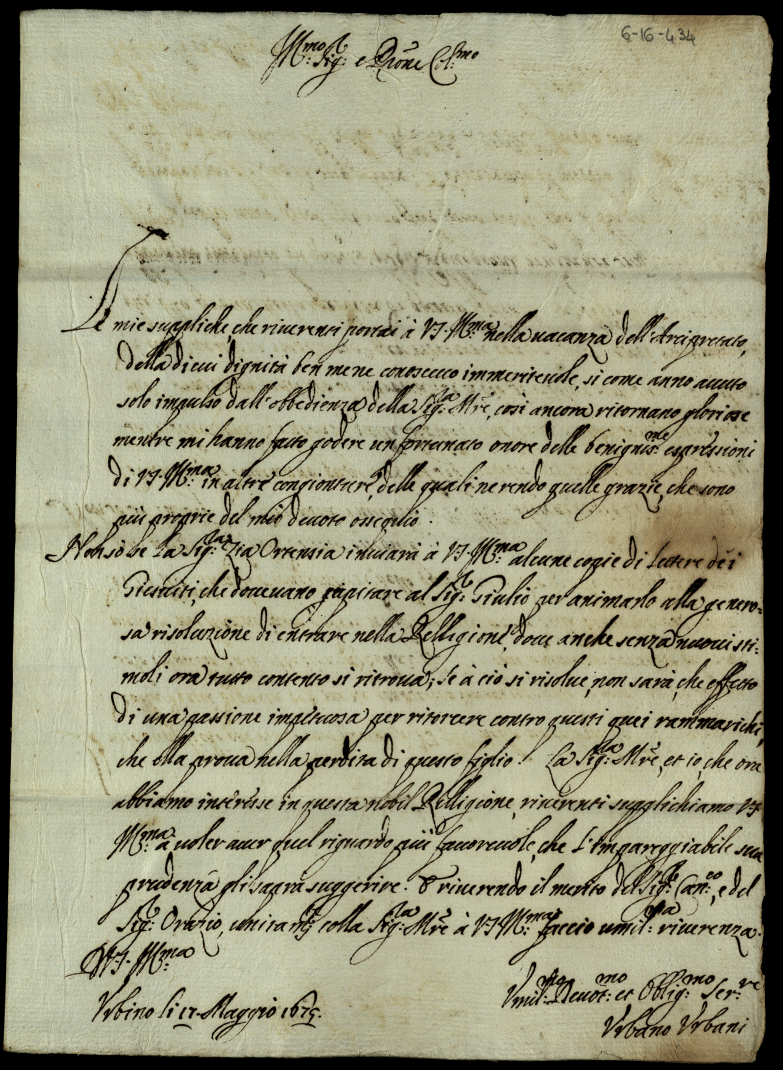 6-16-434
Ill:mo Sig:r e Pron̄e Col:mo
Le mie suppliche, che riverenti portai à V.S. Ill:ma nella vacanza dell'Arcipretato,
della di cui dignità ben mene conoscevo immeritevole, si come anno avuto
solo impulso dall'obbedienza della Sig:ra M̃re, così ancora ritornano gloriose
mentre mi hanno fatto godere un fortunato onore delle benignis:me espressioni
di V.S. Ill:ma in altre congionture, delle quali ne rendo quelle grazie, che sono
più proprie del mio devoto ossequio.
Non sò se la Sig:ra Zia Ortensia inviarà à V.S. Ill:ma alcune copie di Lettere dei
Giesuiti, che dovevano capitare al Sig:r Giulio per animarlo alla genero-
sa risoluzione di entrare nella Relligione, dove anche senza nuovi sti-
moli ora tutto contento si ritrova; se à ciò si risolve, non sarà, che effetto
di una passione impetuosa per ritorcere contro questi quei rammarichi,
che ella prova nella perdita di questo figlio. La Sig:ra M̃re, et io, che ora
abbiamo interesse in questa nobil Relligione, riverenti supplichiamo V.S.
Ill:ma à voler aver quel riguardo più favorevole, che l'impareggiabile sua
prudenza gli saprà suggerire. E riverendo il merito del Sig:r Can:co, e del
Sig:r Orazio, unitam:te colla Sig:ra M̃re à V.S. Ill:ma faccio umil:ma riverenza.
D V.S. Ill:ma
Urbino li 17 Maggio 1675.
Vmil:mo Devot:mo et Oblig:mo Ser:re
Vrbano Vrbani